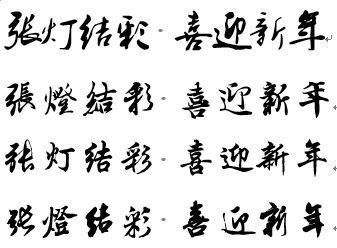 张灯结彩·喜迎新年
張燈結彩·喜迎新年
张灯结彩·喜迎新年
张燈结彩·喜迎新年